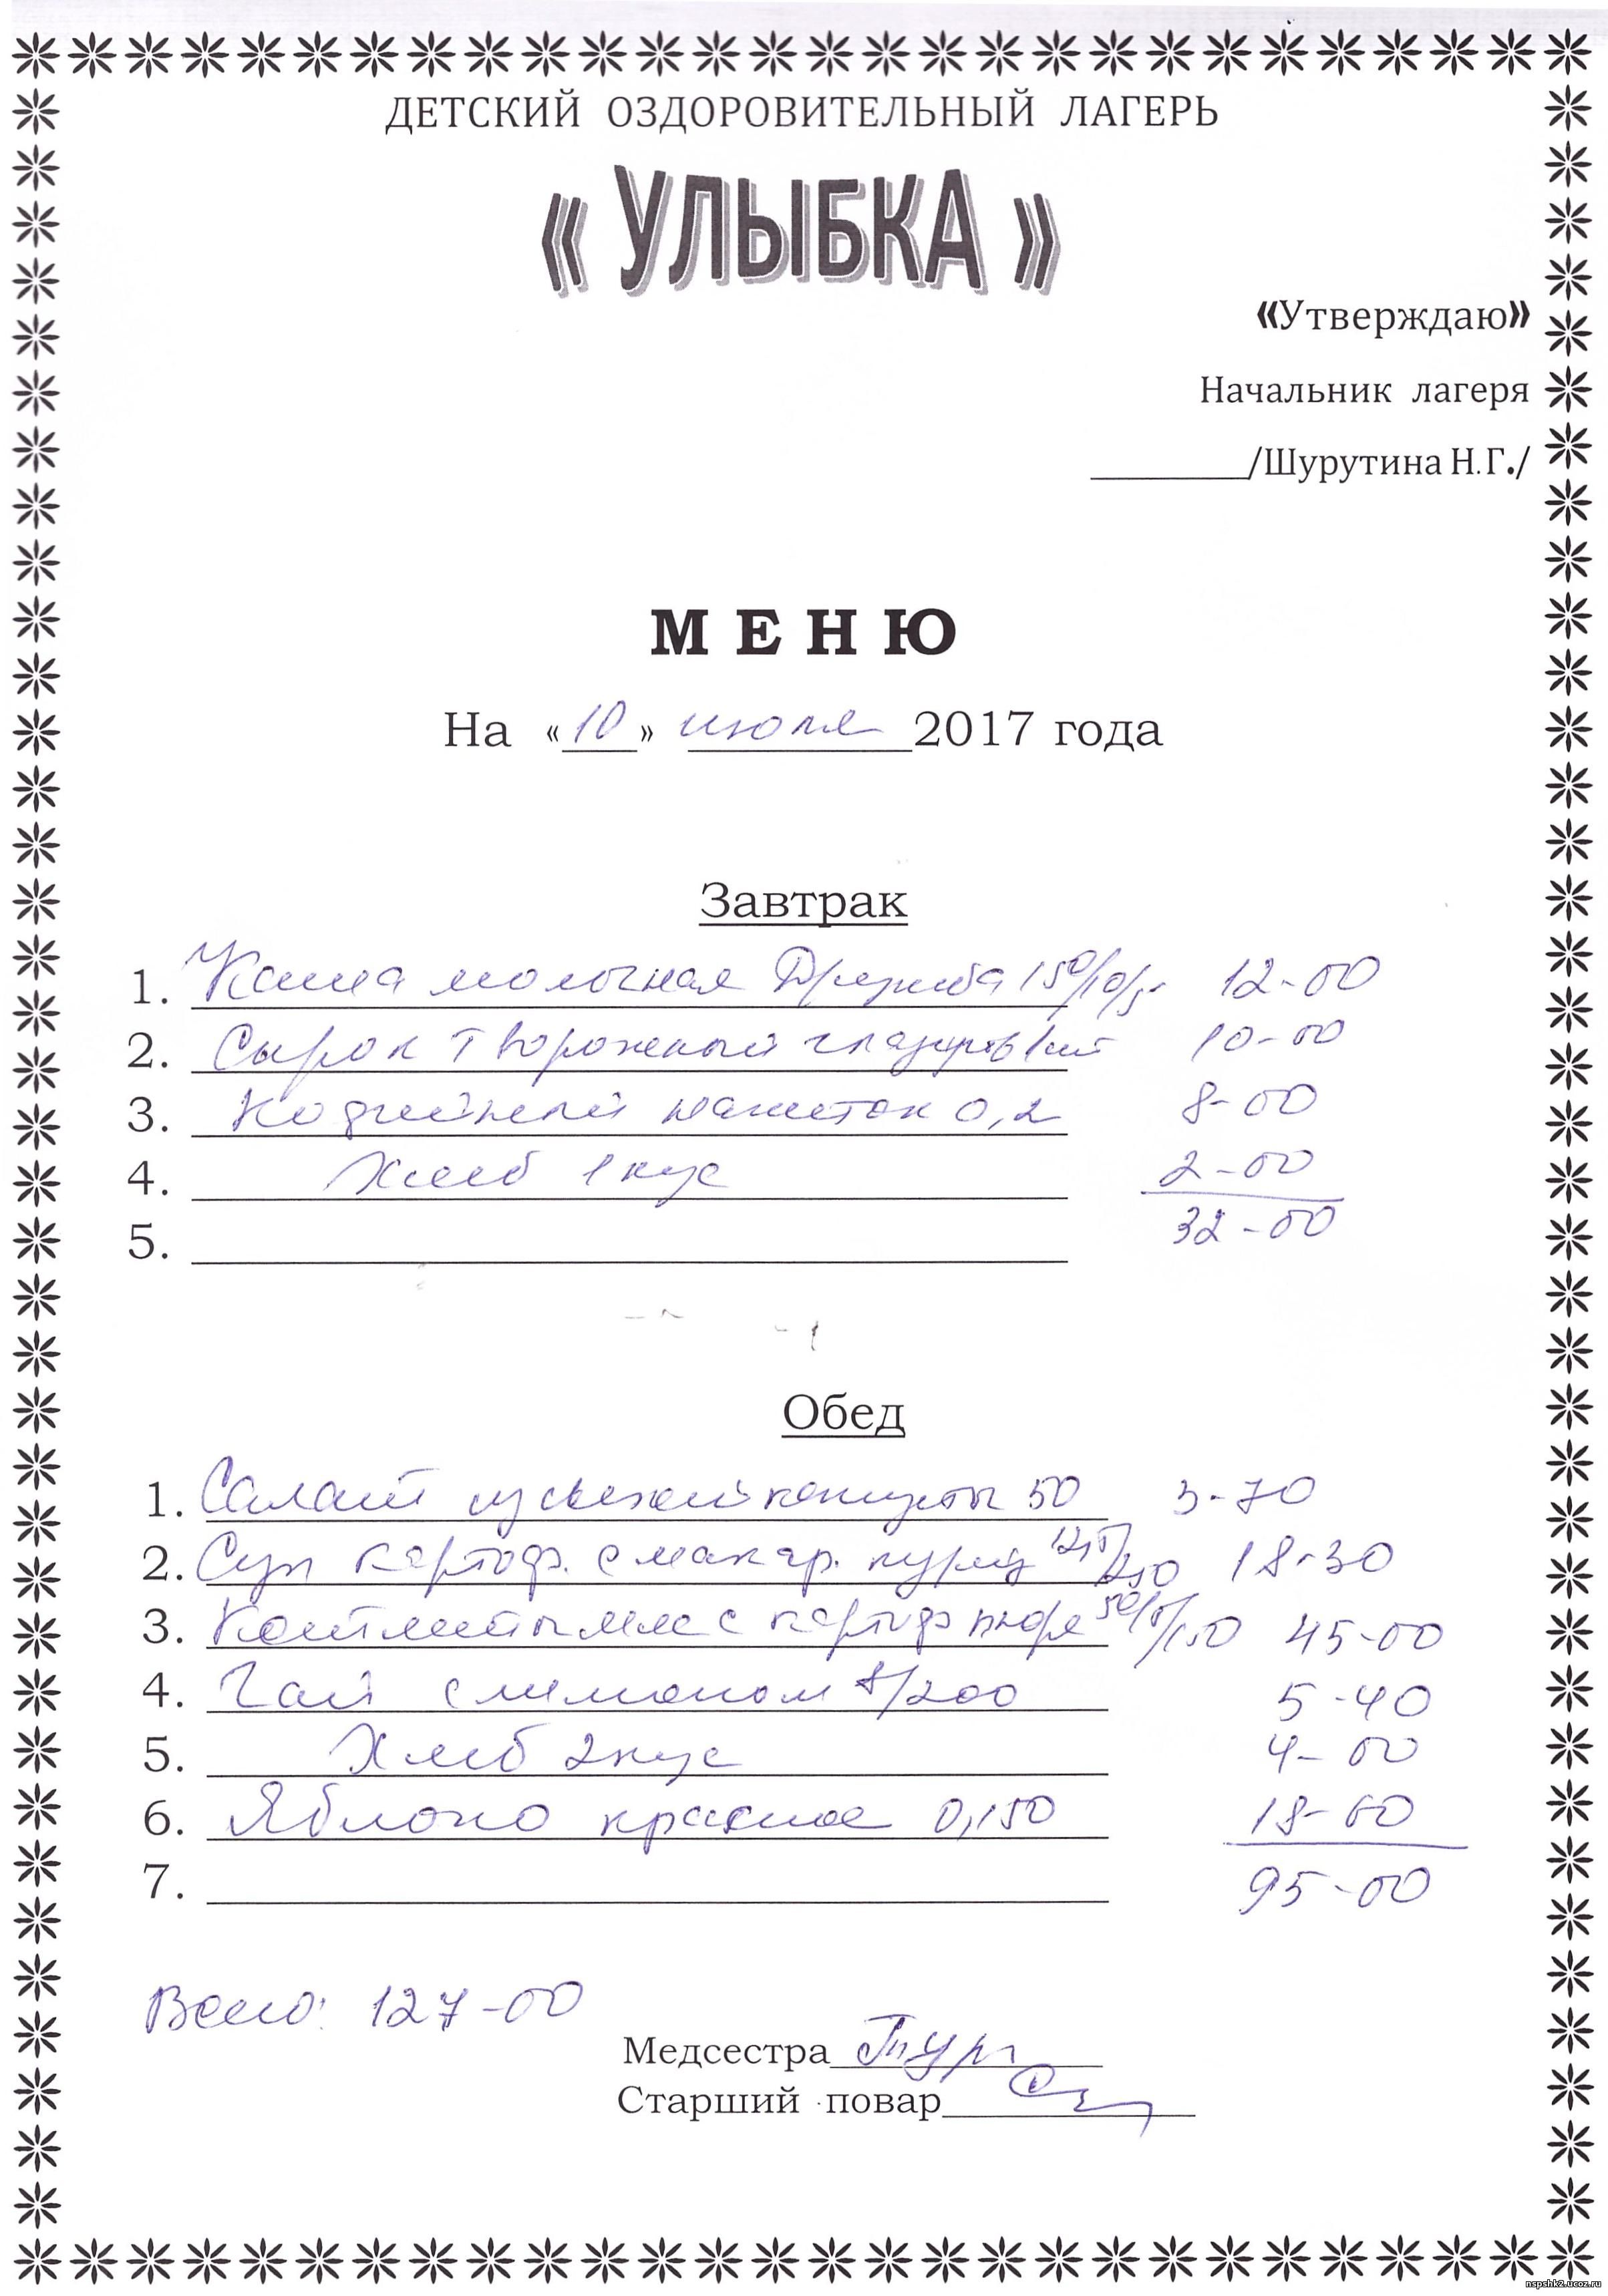 ДЕТСКИЙ ОЗДОРОВИТЕЛЬНЫЙ ЛАГЕРЬ
« УЛЫБКА »
«Утверждаю»
Начальник лагеря
/Шурутина Н.Г./
МЕНЮ
На «10» июля 2017 года
Завтрак
1. Каша молочная Дружба 150/10/5 12-00
2. Сырок творожный глазиров 1шт 10-00
3. Кофейный напиток 0,2 8-00
4. Хлеб 1 кус 2-00
5. 32-00
Обед
1. Салат из свежей капусты 50 3-70
2. Суп картоф. с макар. куриц 12,5/250 18-30
3. Котлеты мяс с картоф пюре 50/5/150 45-00
4. Чай с лимоном 8/200 5-40
5. Хлеб 2 кус 4-00
6. Яблоко красное 0,150 18-60
7. 95-00
Всего: 127-00
Медсестра
Старший повар
nspshk2.ucoz.ru